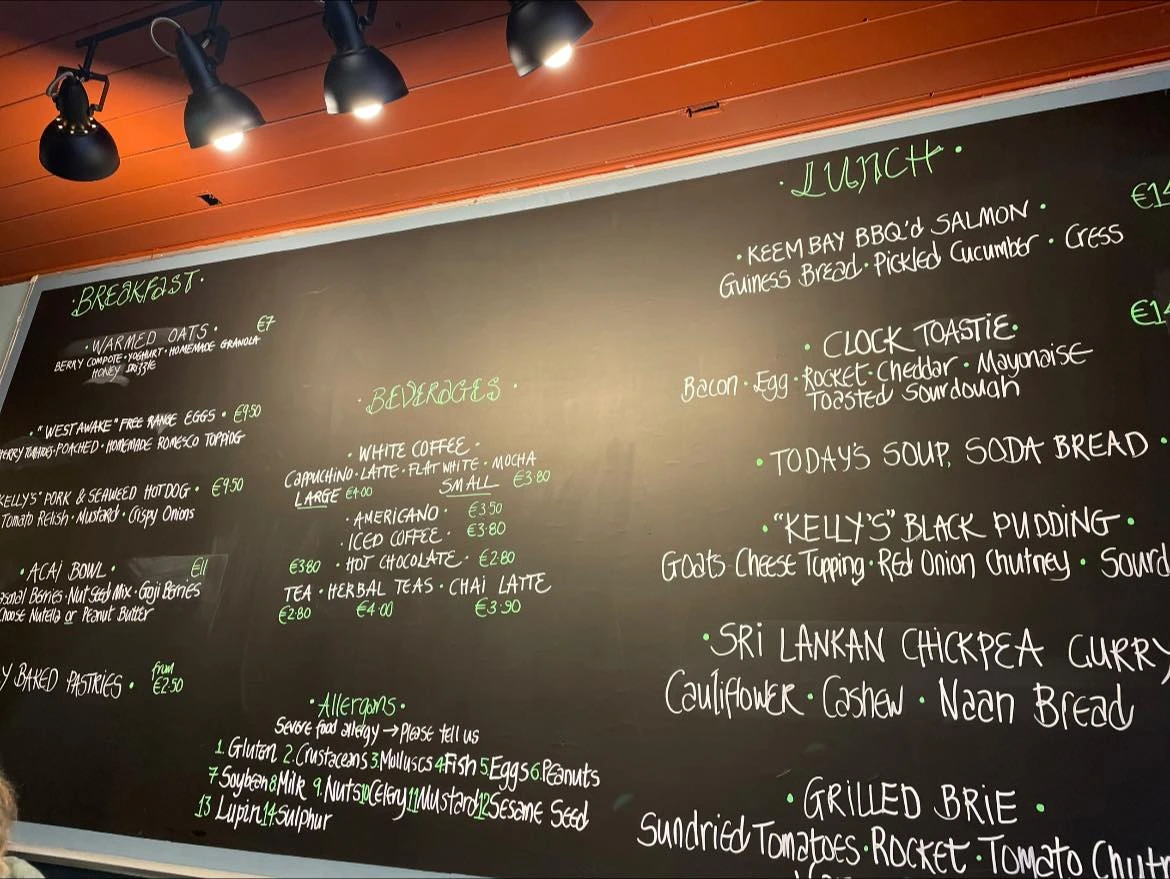 ·BREAKFAST·
·WARMED OATS· €7
BERRY COMPOTE·YOGHURT·HOMEMADE GRANOLA
HONEY DRIZZLE
·"WESTAWAKE" FREE RANGE EGGS· €9.50
HERRY TOMATOES·POACHED·HOMEMADE ROMESCO TOPPING
KELLY'S" PORK & SEAWEED HOTDOG· €9.50
Tomato Relish·Mustard·Crispy Onions
·ACAI BOWL· €11
asonal Berries·Nut Seed Mix·Goji Berries
Choose Nutella or Peanut Butter
Y BAKED PASTRIES· from €2.50
·BEVERAGES·
·WHITE COFFEE·
CAPPUCHINO·LATTE·FLAT WHITE·MOCHA
LARGE €4.00 SMALL €3.80
·AMERICANO· €3.50
·ICED COFFEE· €3.80
€3.80 ·HOT CHOCOLATE· €2.80
TEA·HERBAL TEAS·CHAI LATTE
€2.80 €4.00 €3.90
·Allergans·
Severe food allergy→Please tell us
1.Gluten 2.Crustaceans 3.Molluscs 4Fish 5.Eggs 6.Peanuts
7Soybean 8Milk 9.Nuts 10Celery 11Mustard 12Sesame Seed
13 Lupin 14Sulphur
·LUNCH·
·KEEM BAY BBQ'd SALMON· €14
Guiness Bread·Pickled Cucumber·Cress
·CLOCK TOASTIE· €14
Bacon·Egg·Rocket·Cheddar·Mayonaise
Toasted Sourdough
·TODAY'S SOUP, SODA BREAD·
·"KELLY'S" BLACK PUDDING·
Goats Cheese Topping·Red Onion Chutney·Sourd
·SRI LANKAN CHICKPEA CURRY
Cauliflower·Cashew·Naan Bread
·GRILLED BRIE·
Sundried Tomatoes·Rocket·Tomato Chutn